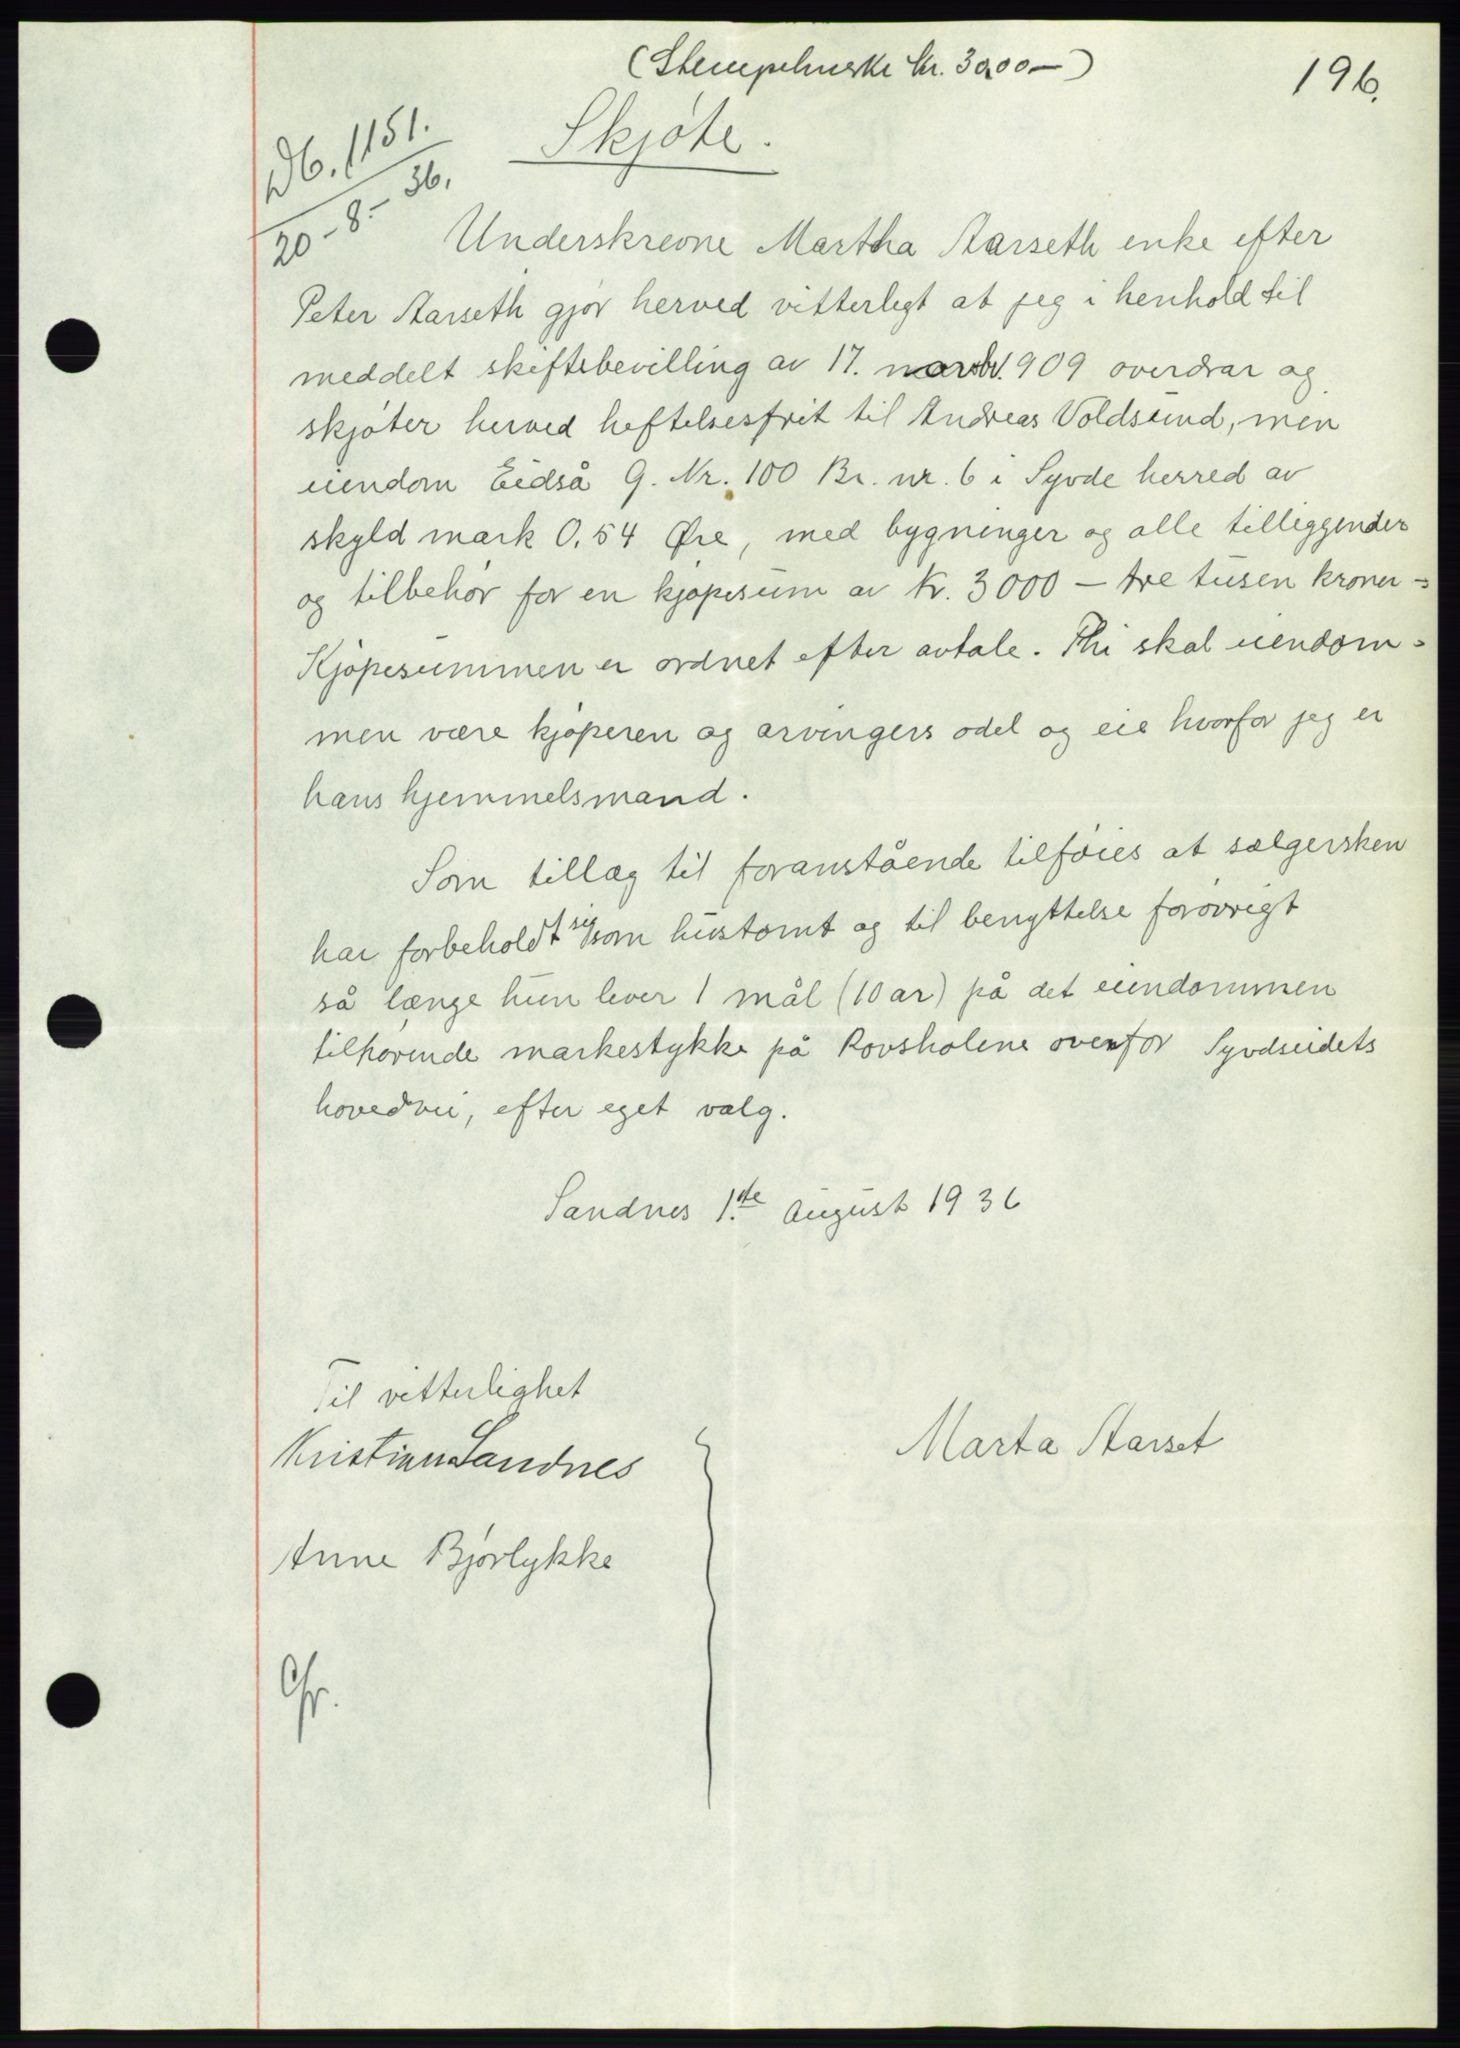 (Stempelmerke kr. 30,00 —)
196.
Skjøte.
Db. 1151.
20 - 8 - 36.
Underskrevne Martha Aarseth enke efter
Peter Aarseth gjør herved vitterligt at jeg i henhold til
meddelt skiftebevilling av 17. novbr. 909 overdrar og
skjøter herved heftelsesfrit til Andreas Voldsund, min
eiendom Eidså G. Nr. 100 Br. nr. 6 i Syvde herred av
skyld mark 0.54 Øre, med bygninger og alle tilliggender
og tilbehør for en kjøpesum av Kr. 3000 — tre tusen kroner -
Kjøpesummen er ordnet efter avtale. Thi skal eiendom-
men være kjøperen og arvingers odel og eie hvorfor jeg er
hans hjemmelsmand.
Som tillæg til foranstående tilføies at sælgersken
har forbeholdt sig som hustomt og til benyttelse forøvrigt
så længe hun lever 1 mål (10 ar) på det eiendommen
tilhørende markestykke på Rovsholene ovenfor Syvdseidets
hovedvei, efter eget valg.
Sandnes 1.ste August 1936
Til vitterlighet
Kristian Sandnes
Marta Aarset
Anne Bjørlykke